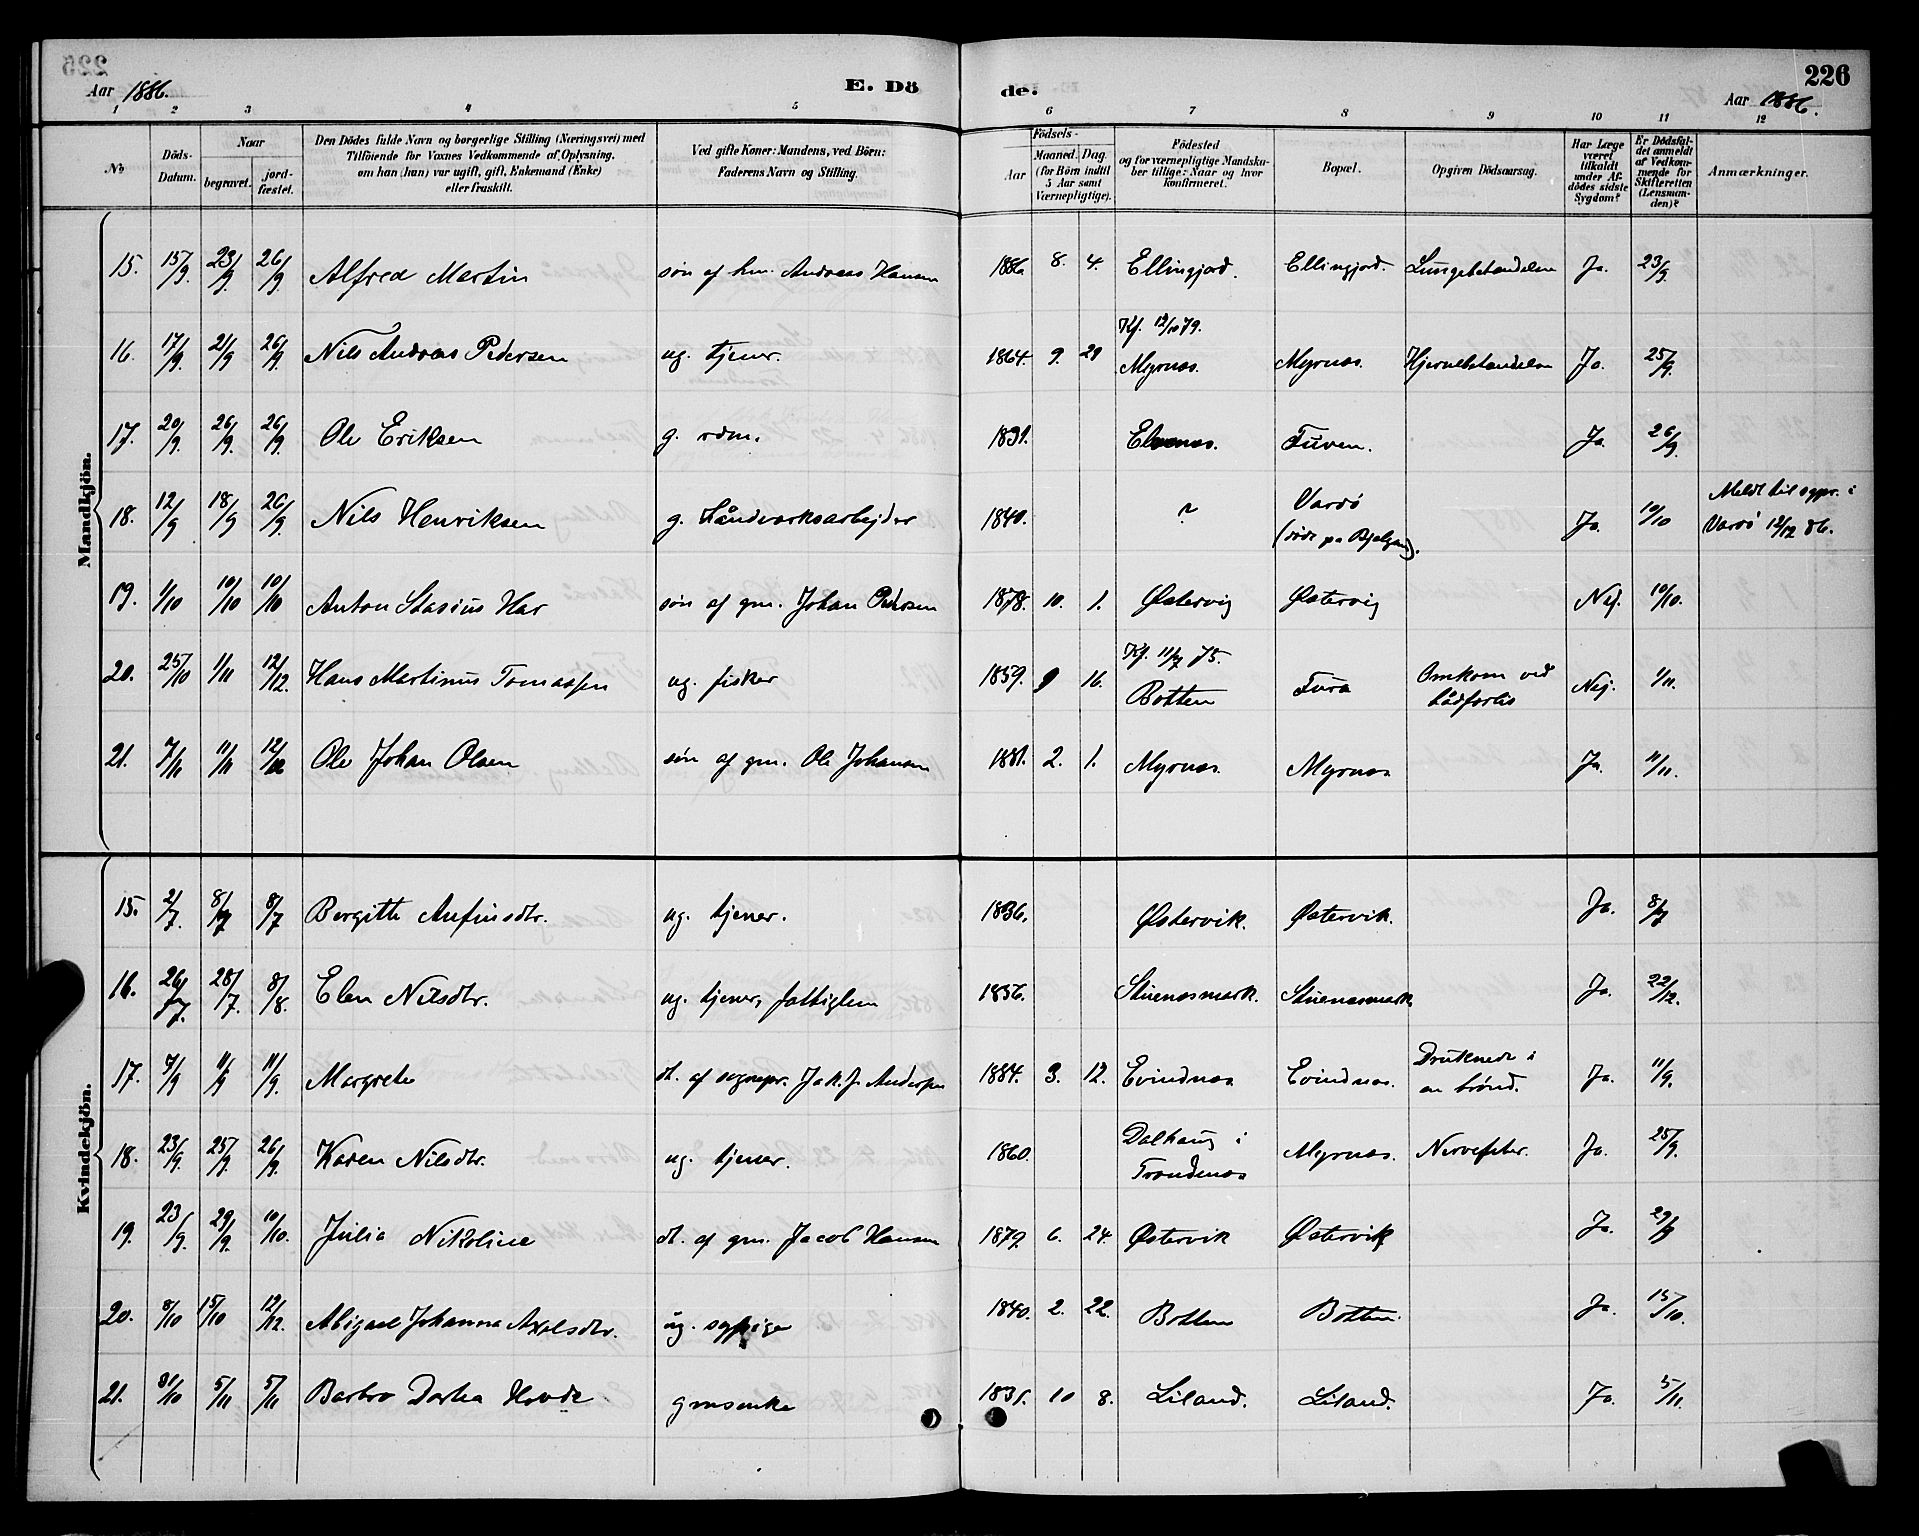 225
Aar 1886.
E. Dö
de.
226
Aar 1886.
1 2 3 4 5 6 7 8 9 10 11 12
No
Döds-
Datum.
Naar
begravet.
jord-
fæstet.
Den Dödes fulde Navn og borgerlige Stilling (Næringsvei) med
Tilföiende for Voxnes Vedkommende af Oplysning,
om han (hun) var ugift, gift, Enkemand (Enke)
eller fraskilt.
Ved gifte Koner: Mandens, ved Börn:
Faderens Navn og Stilling.
Födsels-
Aar
Maaned.
Dag.
(for Börn indtil
5 Aar samt
Værnepligtige).
Födested
og for værnepligtige Mandsku-
ber tillige: Naar og hvor
konfirmeret.
Bopæl.
Opgiven Dödsaarsag.
Har Læge
været
tilkaldt
under Af-
dödes sidste
Sygdom?
Er Dödsfal-
det anmeldt
af Vedkom-
mende for
Skifteretten
(Lensman-
den)?
Anmærkninger.
Mandkjön.
15. 15/9. 23/9. 26/9. Alfred Martin søn af hm. Andreas Hansen 1886 8. 4. Ellingjord. Ellingjord. Lungebetændelse Ja. 23/9.
Kf. 12/10 79.
16. 17/9. 21/9 26/9. Nils Andreas Pedersen ug. tjener. 1864. 9. 29 Myrnes. Myrnes. Hjernebetændelse Ja. 25/9.
17. 20/9. 26/9. 26/9. Ole Eriksen g. rdm. 1831. Elvenes. Tuven. Ja. 26/9.
18. 12/9 18/9 26/9. Nils Henriksen g. Håndverksarbejder 1840. ? Vardø Ja. 10/10 Meldt til sgpr. i
(døde på Bjelgam). Vardø 12/12 86.
19. 1/10 10/10 10/10 Anton Stasius Har søn af gm. Johan Pedersen 1878. 10. 1. Østervig Østervig Nej. 10/10.
Kf. 11/7 75.
20. 25/10 1/11 12/12. Hans Martinus Tomassen ug. fisker 1859. 9 16. Botten Fura Omkom ved Nej. 1/11.
bådforlis
21. 7/11 11/11 12/12 Ole Johan Olsen søn af gm. Ole Johansen 1881. 2. 1. Myrnes. Myrnes Ja. 11/11.
Kvindekjön.
15. 2/7. 8/7 8/7 Bergitte Anfinsdtr. ug. tjener. 1836. Østervik. Østervik. Ja. 8/7
16. 26/7. 28/7. 8/8. Elen Nilsdtr. ug. tjener, fattiglem 1856. Stuenesmark. Stuenesmark Ja. 22/12.
17. 7/9 11/9 11/9. Margrete dt. af sognepr. Jak. J. Anderssen 1884. 3. 12. Evindnes Evindnes. Druknede i Ja. 11/9.
en brønd.
18. 23/9. 25/9. 26/9. Karen Nilsdtr. ug. tjener. 1860. Dalhaug i Myrnes. Nervefeber. Ja. 25/9.
Trondenes
19. 23/9. 29/9. 10/10. Julia Nikoline dt. af gm. Jacob Hansen 1879. 6. 24. Østervik Østervik Ja. 29/9
20. 8/10 15/10 12/12. Abigael Johanna Axelsdtr. ug. sypige 1840. 2. 22. Botten Botten. Ja. 15/10.
21. 31/10 5/11 5/11 Barbro Dortea Hovde gmsenke 1831. 10 8. Liland. Liland. Ja. 5/11.